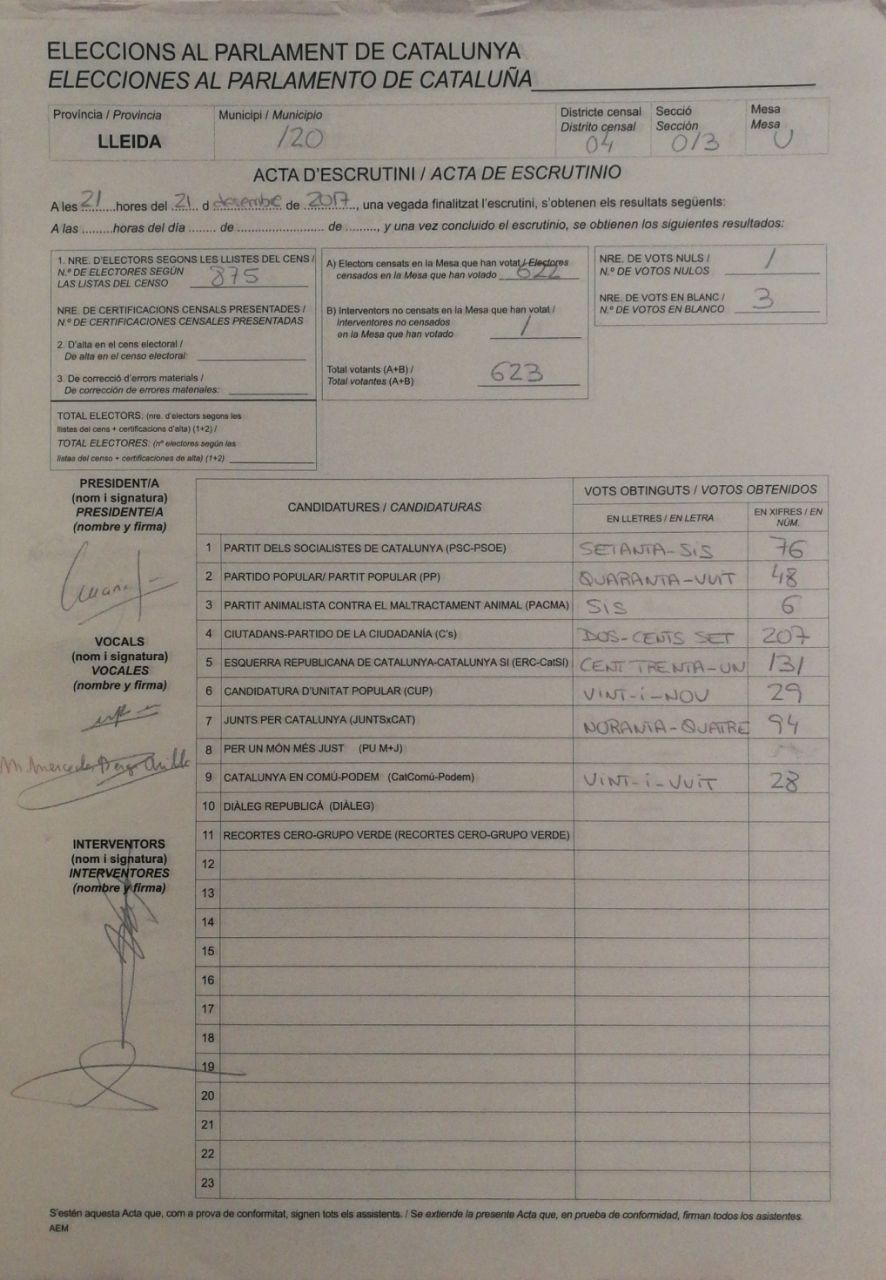 ELECCIONS AL PARLAMENT DE CATALUNYA
ELECCIONES AL PARLAMENTO DE CATALUÑA
Província / Provincia
LLEIDA
Municipi / Municipio
120
Districte censal
Distrito censal
04
Secció
Sección
013
Mesa
Mesa
U
ACTA D'ESCRUTINI / ACTA DE ESCRUTINIO
A les 21 hores del 21 d desembre de 2017, una vegada finalitzat l'escrutini, s'obtenen els resultats següents:
A las ......... horas del día ....... de ........................... de .........., y una vez concluido el escrutinio, se obtienen los siguientes resultados:
1. NRE. D'ELECTORS SEGONS LES LLISTES DEL CENS /
N.º DE ELECTORES SEGÚN
LAS LISTAS DEL CENSO 875
NRE. DE CERTIFICACIONS CENSALS PRESENTADES /
N.º DE CERTIFICACIONES CENSALES PRESENTADAS
2. D'alta en el cens electoral /
De alta en el censo electoral:
3. De correcció d'errors materials /
De corrección de errores materiales:
TOTAL ELECTORS: (nre. d'electors segons les
llistes del cens + certificacions d'alta) (1+2) /
TOTAL ELECTORES: (nº electores según las
listas del censo + certificaciones de alta) (1+2)
A) Electors censats en la Mesa que han votat / Electores
censados en la Mesa que han votado 622
B) Interventors no censats en la Mesa que han votat /
Interventores no censados
en la Mesa que han votado 1
Total votants (A+B) /
Total votantes (A+B) 623
NRE. DE VOTS NULS /
N.º DE VOTOS NULOS 1
NRE. DE VOTS EN BLANC /
N.º DE VOTOS EN BLANCO 3
PRESIDENT/A
(nom i signatura)
PRESIDENTE/A
(nombre y firma)
VOCALS
(nom i signatura)
VOCALES
(nombre y firma)
INTERVENTORS
(nom i signatura)
INTERVENTORES
(nombre y firma)
CANDIDATURES / CANDIDATURAS
VOTS OBTINGUTS / VOTOS OBTENIDOS
EN LLETRES / EN LETRA
EN XIFRES / EN NÚM.
1 PARTIT DELS SOCIALISTES DE CATALUNYA (PSC-PSOE) SETANTA-SIS 76
2 PARTIDO POPULAR/ PARTIT POPULAR (PP) QUARANTA-VUIT 48
3 PARTIT ANIMALISTA CONTRA EL MALTRACTAMENT ANIMAL (PACMA) SIS 6
4 CIUTADANS-PARTIDO DE LA CIUDADANÍA (C's) DOS-CENTS SET 207
5 ESQUERRA REPUBLICANA DE CATALUNYA-CATALUNYA SÍ (ERC-CatSÍ) CENT TRENTA-UN 131
6 CANDIDATURA D'UNITAT POPULAR (CUP) VINT-I-NOU 29
7 JUNTS PER CATALUNYA (JUNTSxCAT) NORANTA-QUATRE 94
8 PER UN MÓN MÉS JUST (PU M+J)
9 CATALUNYA EN COMÚ-PODEM (CatComú-Podem) VINT-I-VUIT 28
10 DIÀLEG REPUBLICÀ (DIÀLEG)
11 RECORTES CERO-GRUPO VERDE (RECORTES CERO-GRUPO VERDE)
12
13
14
15
16
17
18
19
20
21
22
23
S'estén aquesta Acta que, com a prova de conformitat, signen tots els assistents. / Se extiende la presente Acta que, en prueba de conformidad, firman todos los asistentes.
AEM